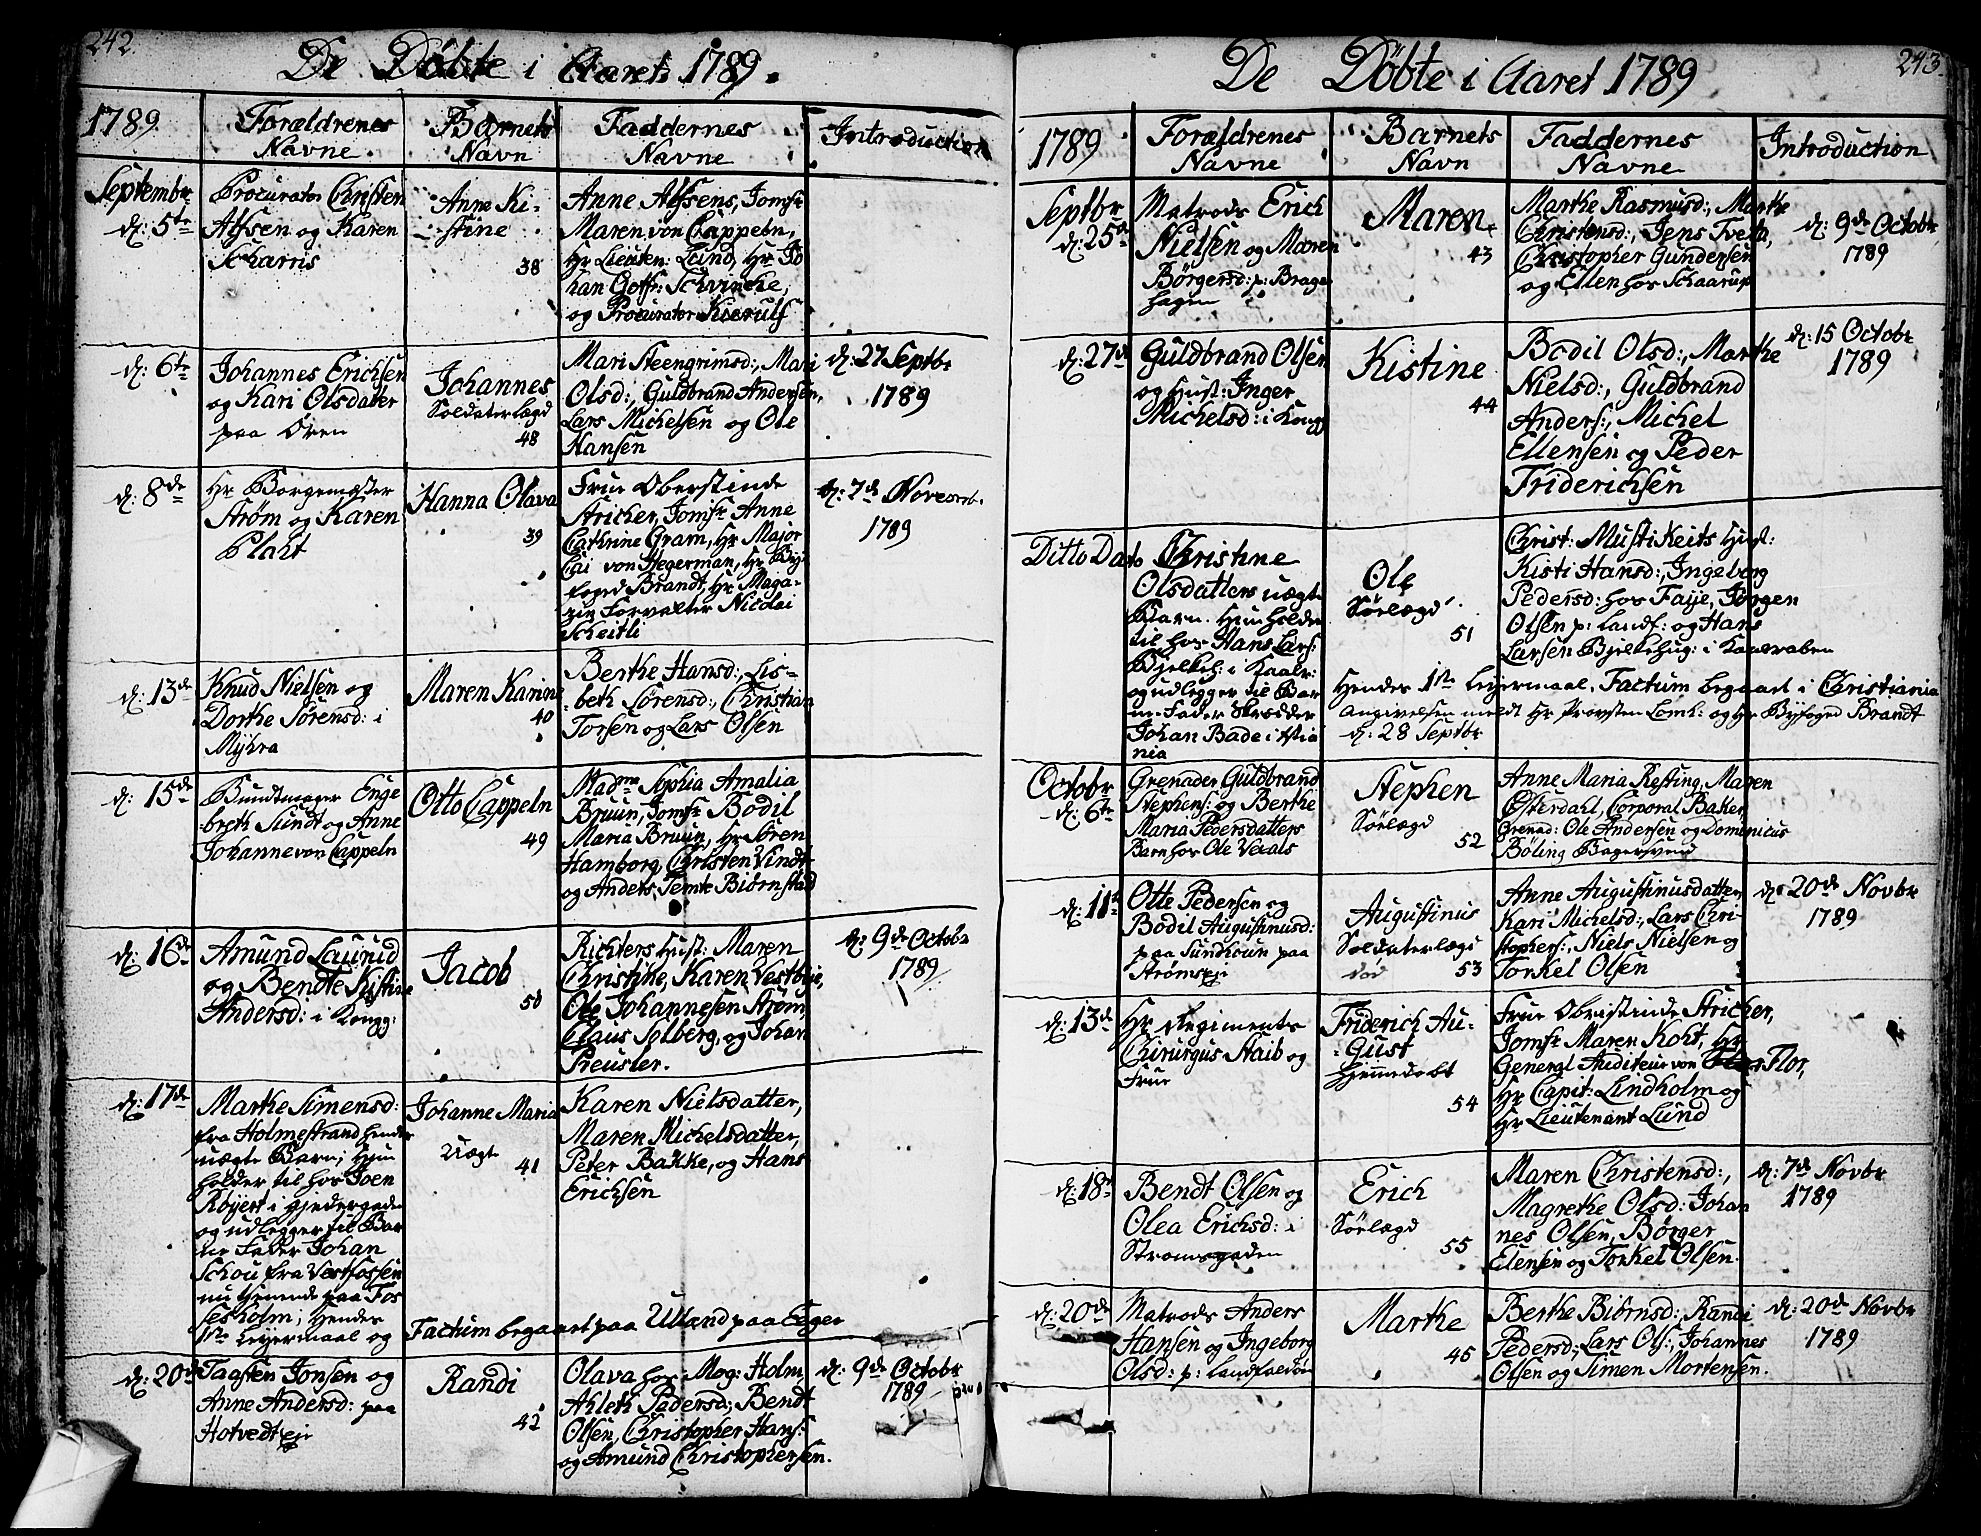 242.
De Døbte i Aaret 1789.
1789.
Forældrenes Navne.
Barnets Navn
Faddernes Navne
Introduction
Septembr
d: 5te
Procurator Christen
Alfsen og Karen
Scharris
Anne Ki-
stine
38
Anne Alfsens, Jomfr
Maren von Cappeln,
Hr Lieuten: Lund, Hr Jo
han Gotfr: Schvincke,
og Procurator Kierulf
d: 6te
Johannes Erichsen
og Kari Olsdatter
paa Øren
Johannes
Soldaterlægd
48
Mari Steengrimsd:, Mari
Olsd:, Guldbrand Andersen,
Lars Michelsen og Ole
Hansen
d: 27 Septbr
1789
d: 8de
Hr Borgemester
Strøm og Karen
Plaht
Hanna Olava
39
Frue Oberstinde
Stricker, Jomfr Anne
Cathrine Gram, Hr Major
Cai von Hegerman, Hr Bÿ-
foged Brandt, Hr Maga-
zin Forvalter Nicolai
Scheitli
d: 2de Novemb.
1789
d: 13de
Knud Nielsen og
Dorthe Sørensd: i
Mÿhra
Maren Karine
40
Berthe Hansd:, Lis-
beth Sørensd:, Christian
Torsen og Lars Olsen
d: 15de
Bundtmager Enge
breth Sundt og Anne
Johanne von Cappeln
Otto Cappeln
49
Madme Sophia Amalia
Bruun, Jomfr Bodil
Maria Bruun, Hr Sören
Hamborg, Christen Vindt
og Anders Temte Biørnstad
d: 16de
Amund
og Bendte Kistine
Andersd: i Kongg:
Jacob
50
Richters Hust: Maren
Christine, Karen Vestbÿe,
Ole Johannesen Strøm,
Claus Solberg, og Johan
Preusler.
d: 9de Octobr
1789
d: 17de
Marthe Simensd:
fra Holmestrand hendes
uægte Barn; Hun
holder til hos Joen
Røÿert i Hjedergaden
og udlegger til Bar
ne Fader Johan
Schou fra Vestfossen
nu tjenende paa Fos
sesholm; Hendes
1te Leÿermaal og
Factum begaaet paa Ulland paa Eger
Johanne Maria
Uægt
41
Karen Nielsdatter,
Maren Michelsdatter,
Peter Bakke, og Hans
Erichsen
d: 20de
Taasten Jonsen og
Anne Andersd: paa
Hotvedt ejr
Randi
42
Olava hos Mog: Holm,
Ahleth Pedersd:, Bendt
Olsen, Christopher Hans:
og Amund Christophersen.
d: 9de Octobr
1789
243.
De Döbte i Aaret 1789
1789
Forældrenes Navne
Barnets Navn
Faddernes Navne
Introduction
Septbr
d: 25de
Matrods Erich
Nielsen og Maren
Börgersd: p: Brage
hagen
Maren
43
Marthe Rasmusd:, Marthe
Christensd:, Jens Tveta,
Christopher Gundersen
og Ellen hos Schaarup
d: 9de Octobr
1789
d: 27de
Guldbrand Olsen
og Hust: Inger
Michelsd: i Kongg
Kistine
44
Bodil Olsd:, Marthe
Nielsd:, Guldbrand
Anders:, Michel
Ellensen og Peder
Friderichsen
d: 15 Octobr
1789
Ditto Dato
Christine
Olsdatters uægte
Barn. Hun holder
til hos Hans Lars:
Bjelkeh: i Kaalr:
og udlegger til Bar
ne-Fader Skrædder
Johan Bade i Xstia
nia
Ole
Söelægd
51
Christ: MustiKeits Hust:
Kisti Hansd:, Ingeborg
Pedersd: hos Faÿe, Jörgen
Olsen p: Landf: og Hans
Larsen Bjelkehug: i Kaaleraben
Hendes 1ste Leÿermaal. Factum begaaet i Christiania
Angivelsen meldt Hr Provsten Lomh: og Hr Bÿfoged Brandt
d: 28 Septbr
Octobr
d: 6te
Grenader Guldbrand
Stephens: og Berthe
Maria Pedersdatters
Barn hos Ole Verals
Stephen
Söelægd
52
Anne Maria Resting, Maren
Österdahl, Corporal Bakke,
Grenad: Ole Andersen og Domenicus
Böling Bagersvend
d: 11te
Otte Pedersen og
Bodil Augustinusd:
paa paa
Strømsej
Augustinus
Soldaterlægd
död
53
Anne Augustinusdatter,
Kari Michelsd:, Lars Chri-
stophers:, Niels Nielsen og
Torkel Olsen
d: 20de Novbr
1789
d: 13de
Hr Regiments
Chirurgus Staib og
Frue
Friderich Au-
gust
Hjemmedøbt
54
Frue Obristinde Stricker,
Jomfr Maren Koht, Hr
General Auditeur von Flor,
Hr Capit: Lindholm og
Hr Lieutenant Lund
d: 18de
Bendt Olsen og
Olea Erichsd: i
Strömsgaden
Erich
Söelægd
55
Maren Christensd:,
Magrethe Olsd: Johan
nes Olsen, Börger
Elensen og Torkel Olsen.
d: 7de Novbr
1789
d: 20de
Matrods Anders
Hansen og Ingeborg
Olsd: p: Landfaldøen
Marthe
45
Berthe Biörnsd:, Randi
Pedersd:, Lars Ols:, Johannes
Olsen og Simen Mortensen.
d: 20de Novbr
1789